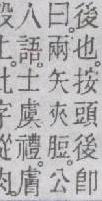 後也。按頭後卽
曰。兩矢夾脰。公
人語。士虞禮。膚
上。此字從肉